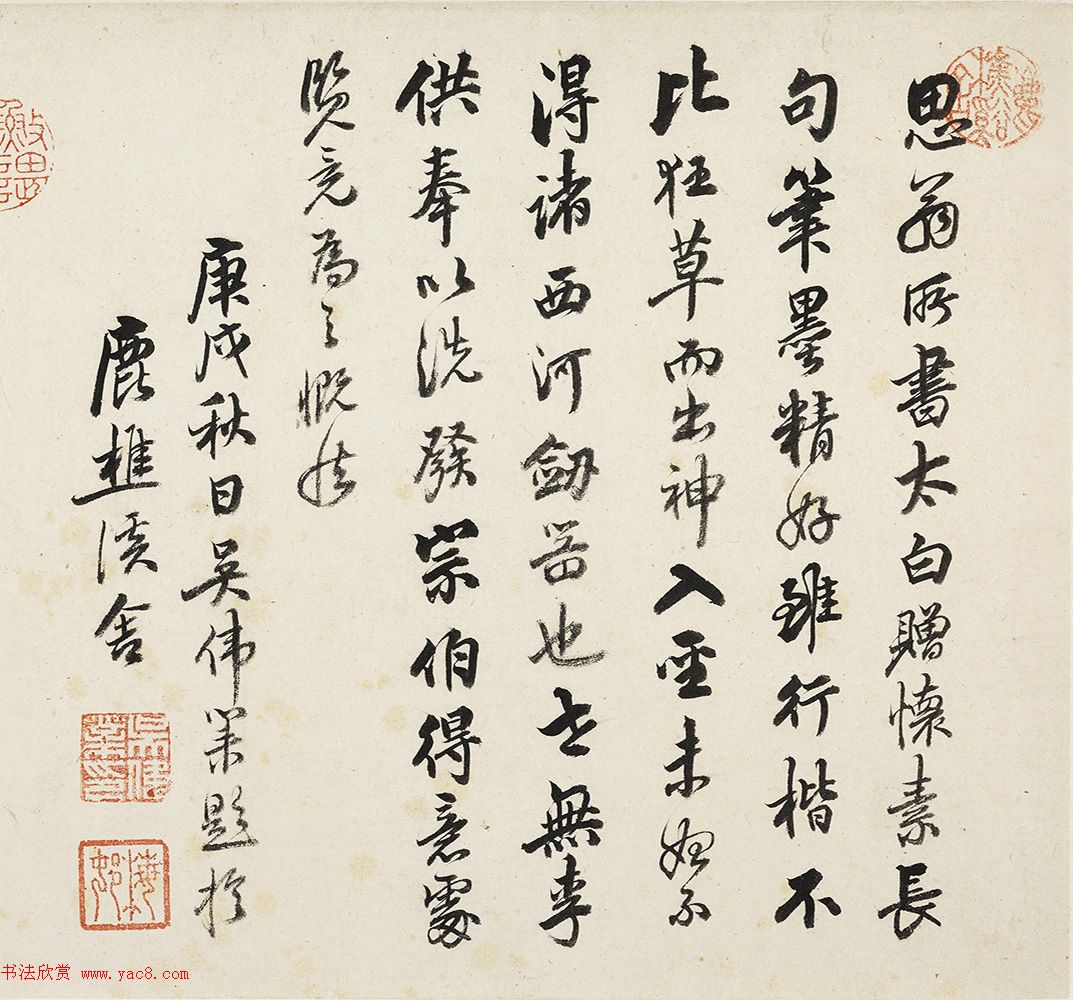 思翁所書太白贈懷素長
句筆墨精好雖行楷不
比狂草而出神入聖未始不
得諸西河劒器也世無李
供奉以洗發宗伯得意處
覽竟為之慨然
庚戌秋日吳偉業題於
鹿樵溪舍
吳偉業印
梅邨
书法欣赏 www.yac8.com